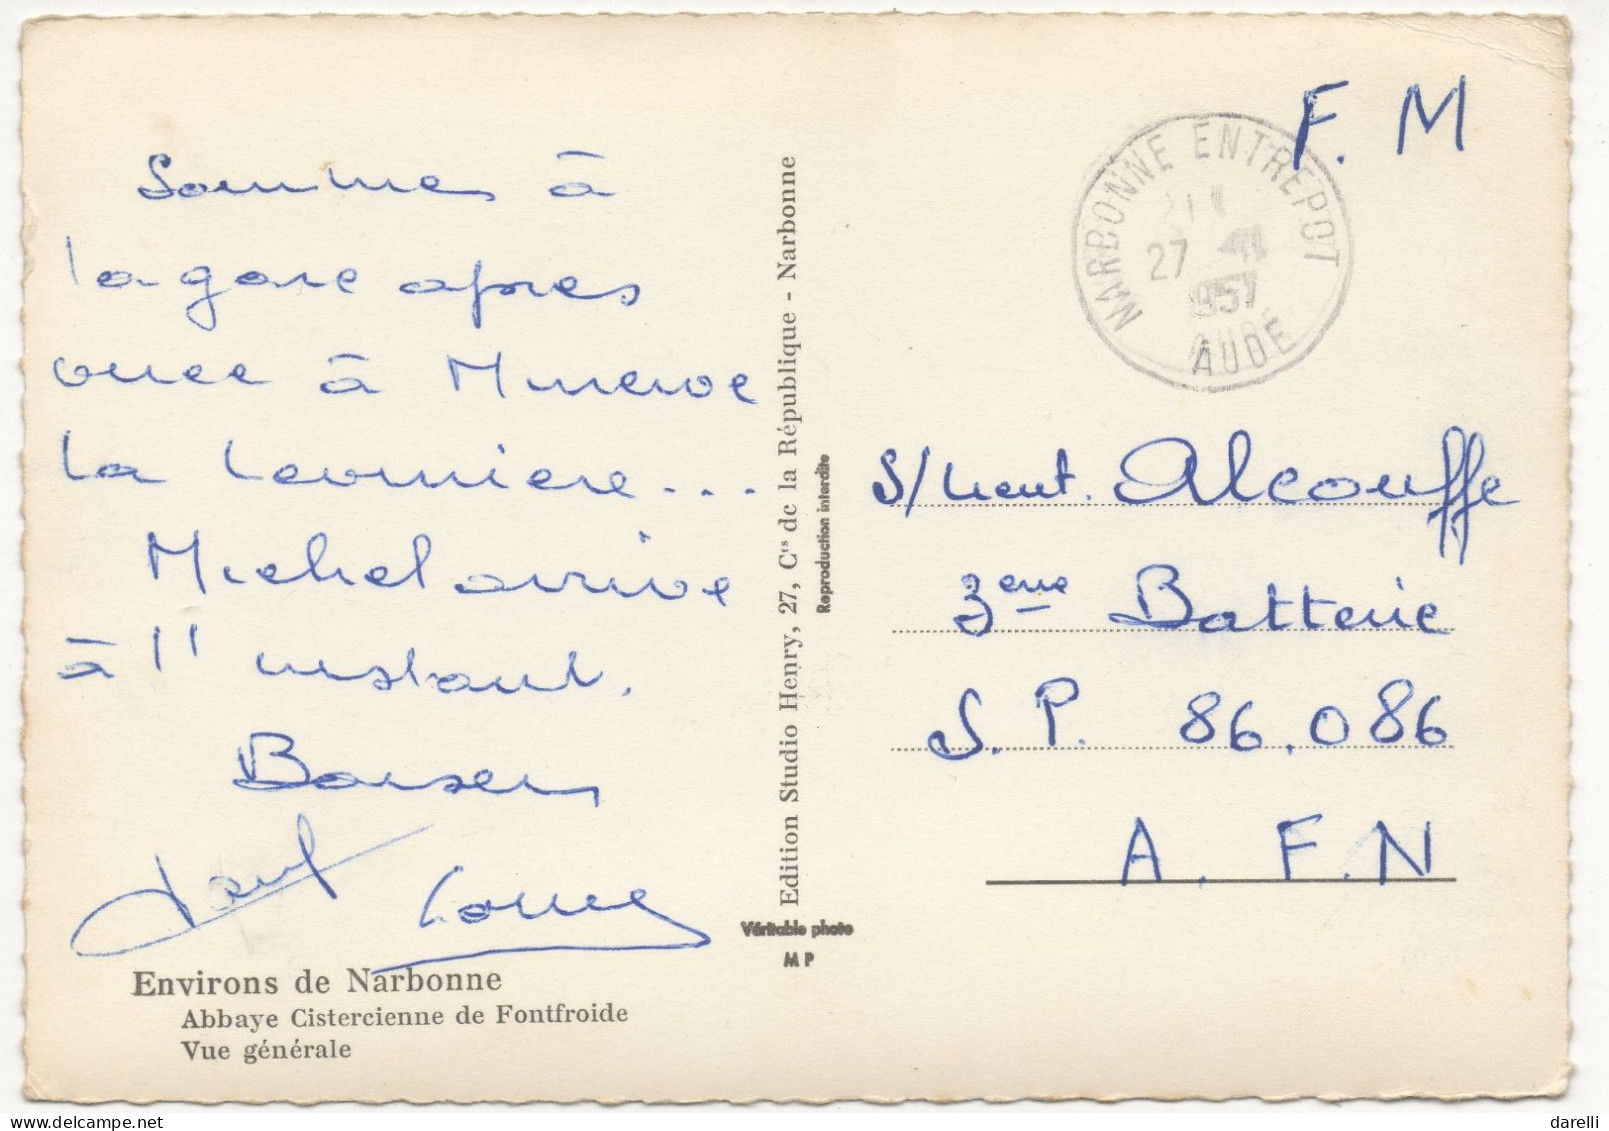 Sommes à
la gare après
virée à Minerve
la Caunière...
Michel arrive
à l'instant.
Baisers
Paul
Environs de Narbonne
Abbaye Cistercienne de Fontfroide
Vue générale
Edition Studio Henry, 27, Crs de la République - Narbonne
Reproduction interdite
Véritable photo
M P
F. M
NARBONNE ENTREPOT
27
1957
AUDE
S/Lieut. Alcouffe
3eme Batterie
S.P. 86.086
A. F. N
darelli